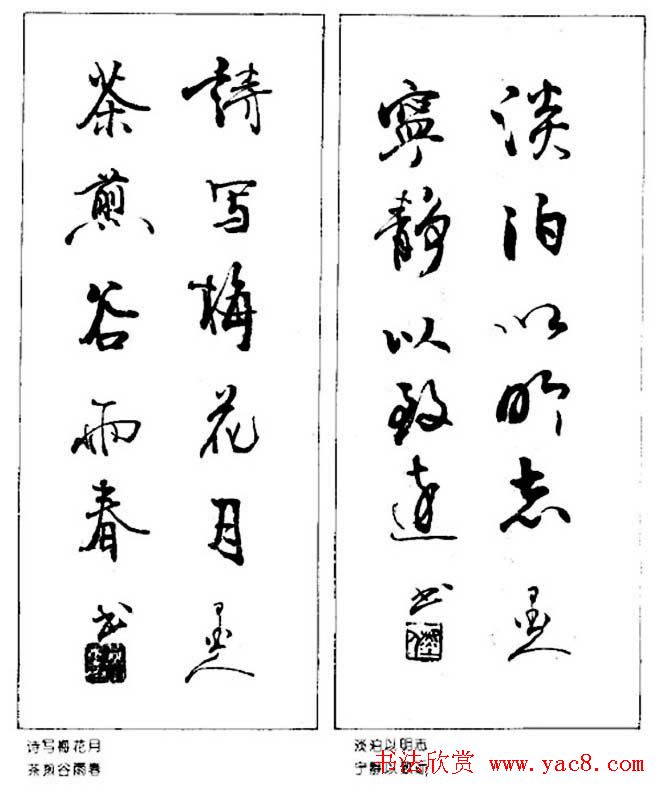 淡泊以明志
寧静以致遠
墨人
书
詩写梅花月
茶煎谷雨春
墨人
书
诗写梅花月
茶煎谷雨春
淡泊以明志
宁静以致远
书法欣赏 www.yac8.com